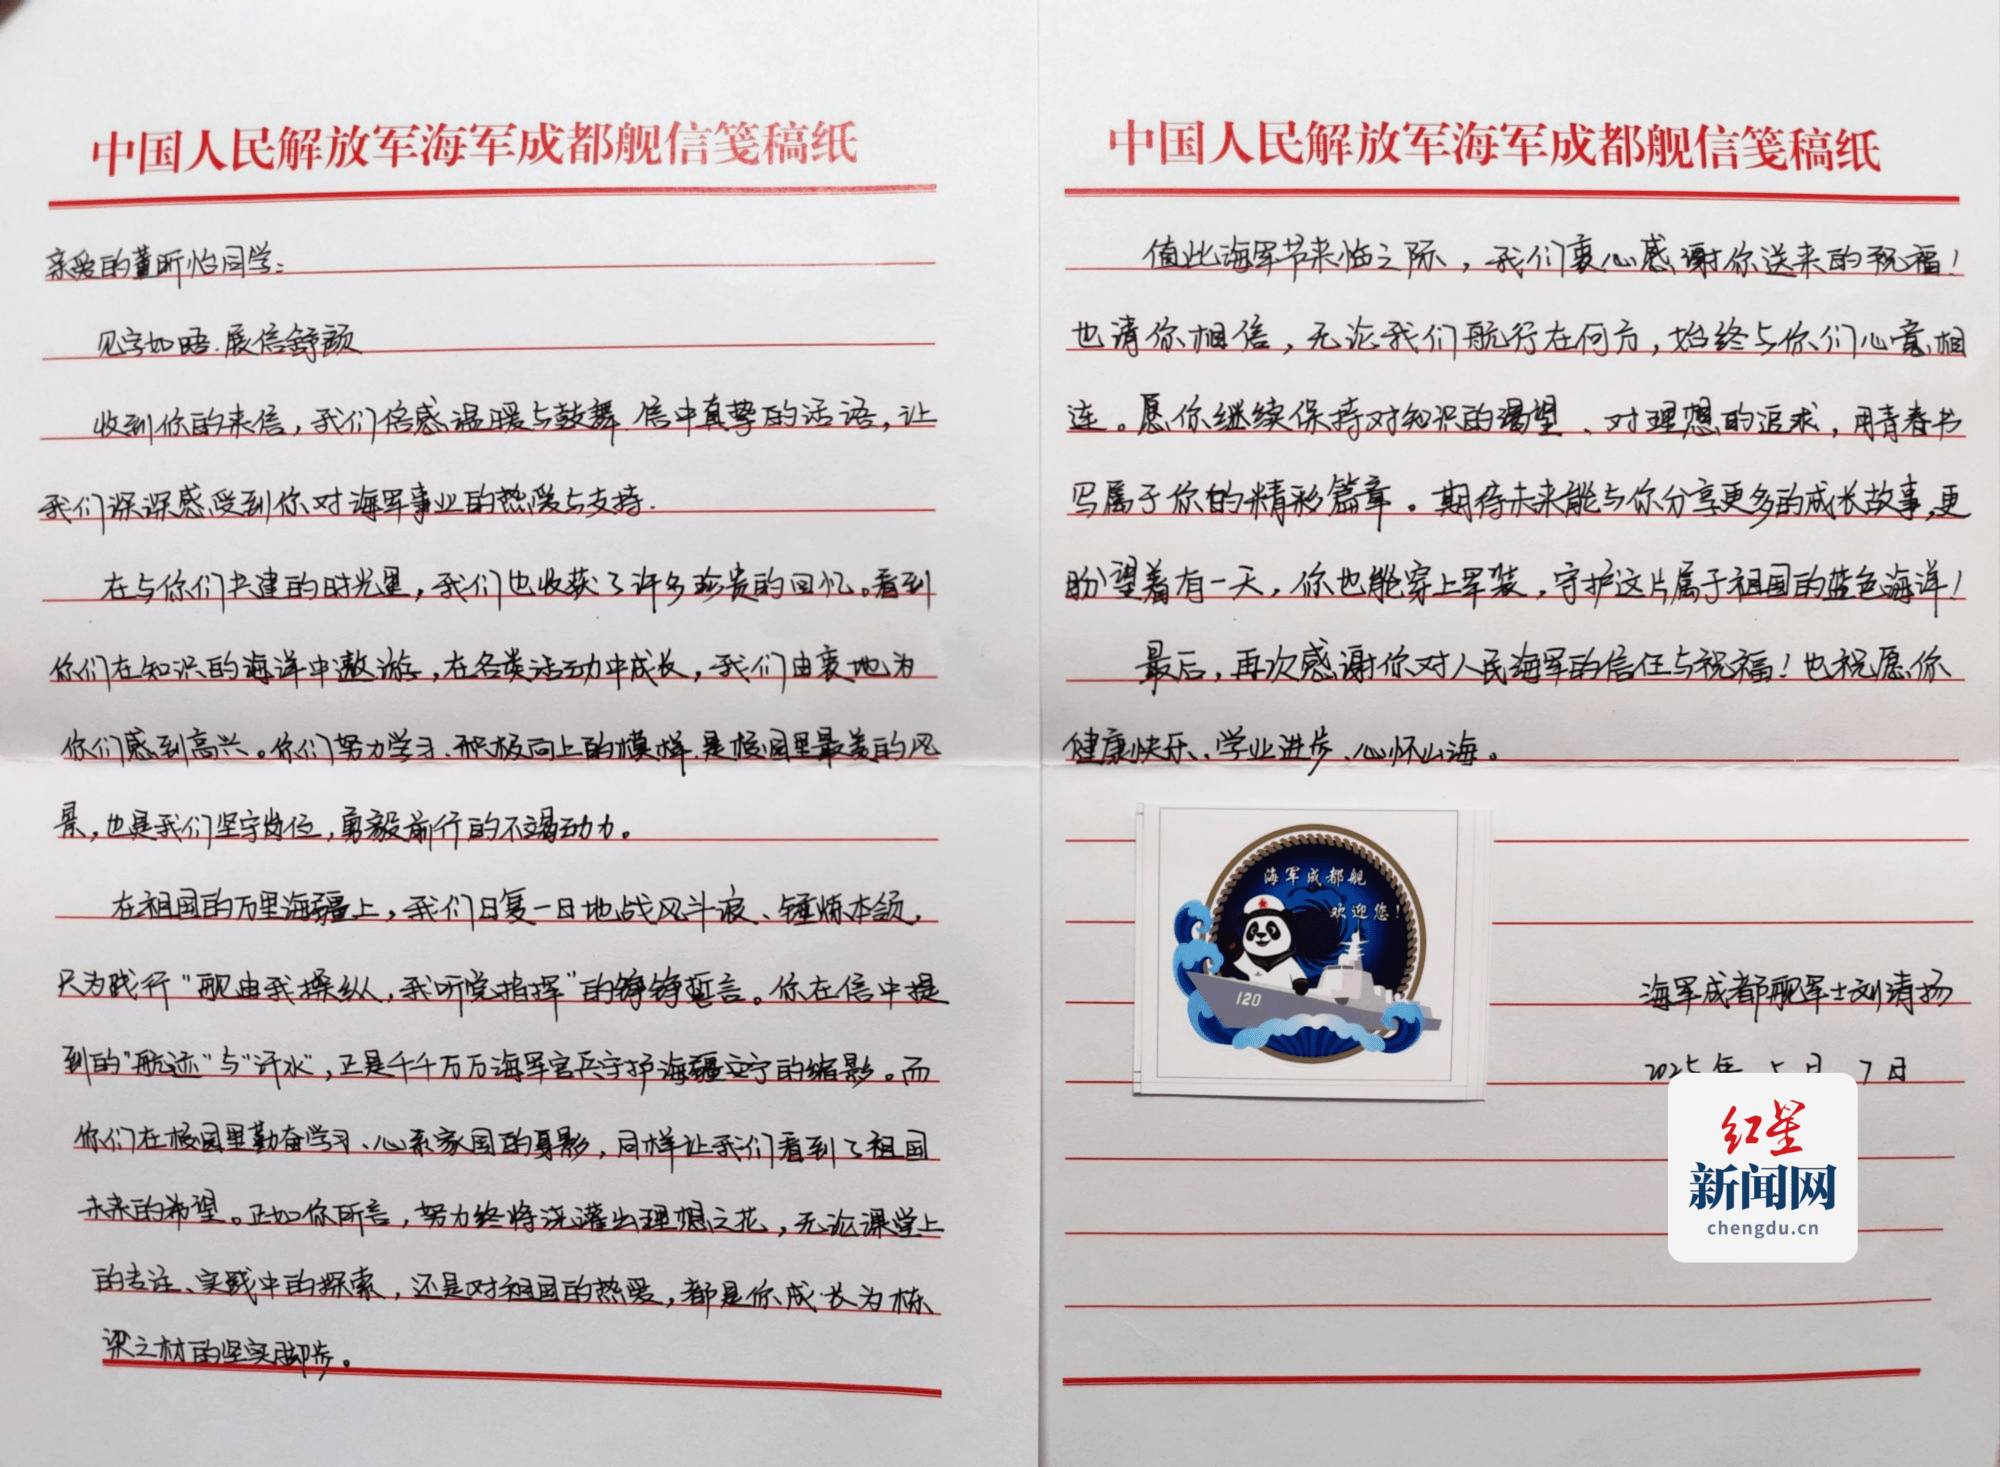 中国人民解放军海军成都舰信笺稿纸
亲爱的董昕怡同学:
见字如晤.展信舒颜
收到你的来信，我们倍感温暖与鼓舞.信中真挚的话语，让
我们深深感受到你对海军事业的热爱与支持.
在与你们共建的时光里，我们也收获了许多珍贵的回忆。看到
你们在知识的海洋中遨游，在各类活动中成长，我们由衷地为
你们感到高兴。你们努力学习、积极向上的模样.是校园里最美的风
景，也是我们坚守岗位，勇毅前行的不竭动力。
在祖国的万里海疆上，我们日复一日地战风斗浪、锤炼本领，
只为践行“舰由我操纵，我听党指挥”的铮铮誓言。你在信中提
到的“航迹”与“汗水”，正是千千万万海军官兵守护海疆安宁的缩影。而
你们在校园里勤奋学习、心系家国的身影，同样让我们看到了祖国
未来的希望。正如你所言，努力终将浇灌出理想之花，无论课堂上
的专注、实践中的探索，还是对祖国的热爱，都是你成长为栋
梁之材的坚实脚步。
中国人民解放军海军成都舰信笺稿纸
值此海军节来临之际，我们衷心感谢你送来的祝福！
也请你相信，无论我们航行在何方，始终与你们心意相
连。愿你继续保持对知识的渴望、对理想的追求，用青春书
写属于你的精彩篇章。期待未来能与你分享更多的成长故事，更
盼望着有一天，你也能穿上军装，守护这片属于祖国的蓝色海洋！
最后，再次感谢你对人民海军的信任与祝福！也祝愿你
健康快乐、学业进步、心怀山海。
海军成都舰
欢迎您！
120
海军成都舰军士刘清扬
2025年5月7日
红星
新闻网
chengdu.cn